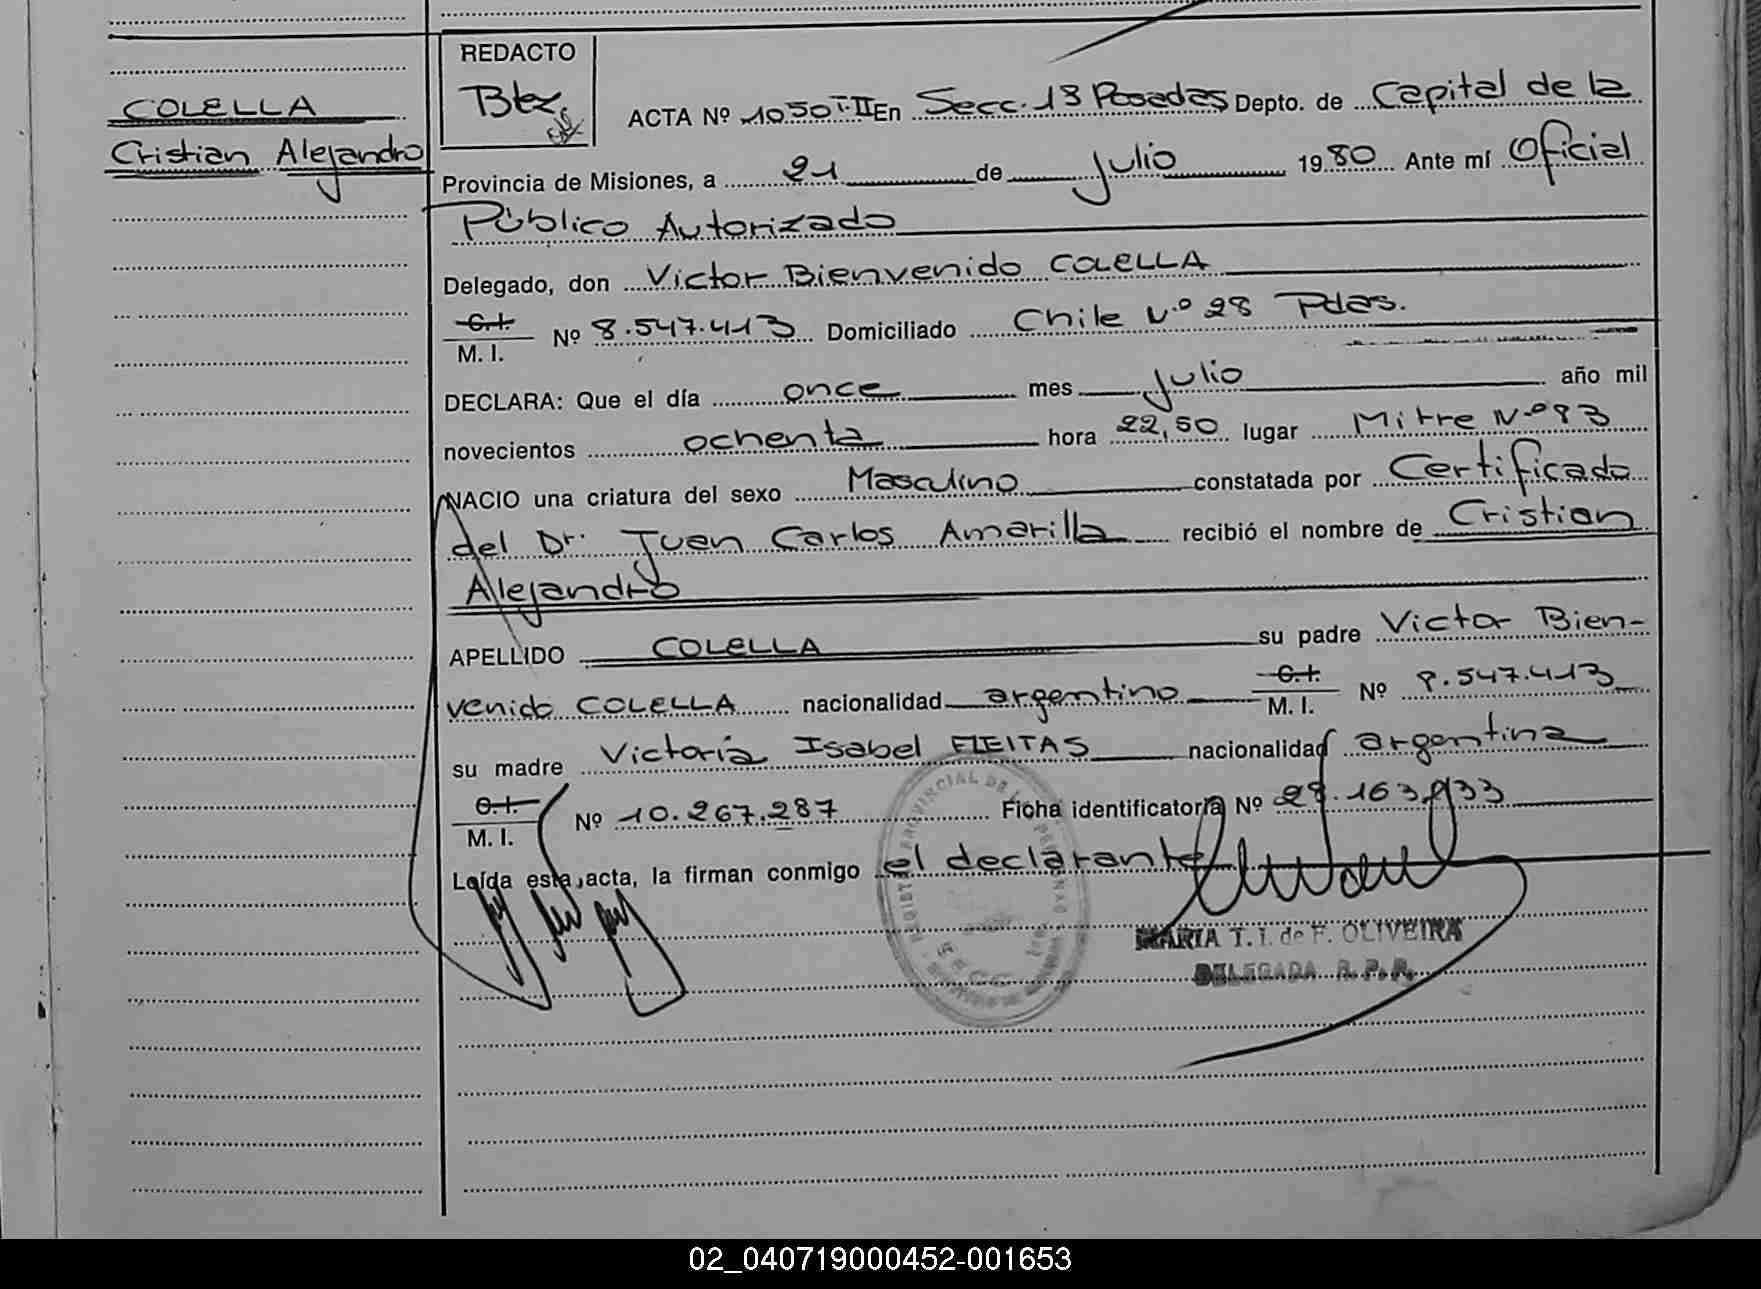 COLELLA
Cristian Alejandro
REDACTO
ACTA Nº 1050 T·II En Secc. 13 Posadas Depto. de Capital de la
Provincia de Misiones, a 21 de Julio 1980 Ante mí Oficial
Público Autorizado
Delegado, don Victor Bienvenido COLELLA
C.I.
M. I. Nº 8.547.413 Domiciliado Chile Nº 28 Pdas.
DECLARA: Que el día once mes Julio año mil
novecientos ochenta hora 22,50 lugar Mitre Nº 83
NACIO una criatura del sexo Masculino constatada por Certificado
del Dr. Juan Carlos Amarilla recibió el nombre de Cristian
Alejandro
APELLIDO COLELLA su padre Victor Bien-
venido COLELLA nacionalidad argentino C.I. M. I. Nº 8.547.413
su madre Victoria Isabel FLEITAS nacionalidad argentina
C.I.
M. I. Nº 10.267.287 Ficha identificatoria Nº 28.163.933
Leída esta acta, la firman conmigo el declarante
MARIA T. I. de F. OLIVEIRA
DELEGADA R. P. P.
02_040719000452-001653